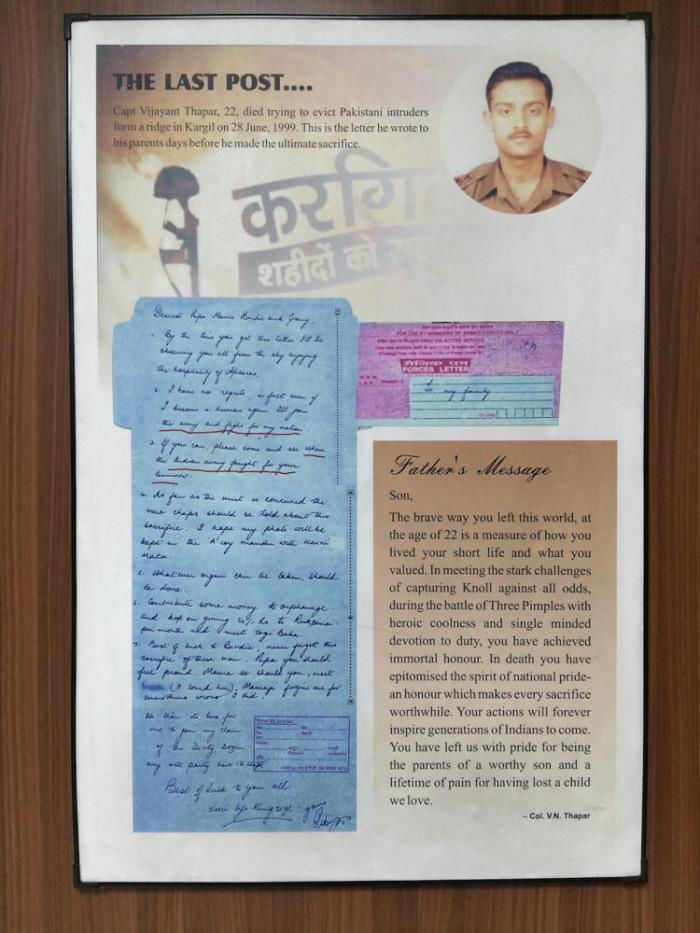 THE LAST POST....
Capt Vijayant Thapar, 22, died trying to evict Pakistani intruders
form a ridge in Kargil on 28 June, 1999. This is the letter he wrote to
his parents days before he made the ultimate sacrifice.
शहीदों को
Dearest Papa, Mama Birdie and Granny,
1. By the time you get this letter I'll be
observing you all from the sky enjoying
the hospitality of Apsaras.
2. I have no regrets, in fact even if
I become a human again I'll join
the army and fight for my nation.
3. If you can, please come and see where
the Indian army fought for your
tomorrow.
4. As far as the unit is concerned the
new chaps should be told about this
sacrifice. I hope my photo will be
kept in the 'A' coy mandir with Karni
mata.
5. Whatever organ can be taken, should
be done.
6. Contribute some money to orphanage
and keep on giving 50/- Rs to Rukhsana
per month and meet Yogi Baba.
7. Best of luck to Birdie, never forget this
sacrifice of these men. Papa you should
feel proud. Mama so should you, meet
(I loved her). Mamaji forgive me for
everything wrong I did.
Ok then its time for
me to join my clan
of the Dirty Dozen
my party has 12 chaps
Best of luck to you all
Live life Kingsize - yours
FORCES LETTER
To my family
Father's Message
Son,
The brave way you left this world, at
the age of 22 is a measure of how you
lived your short life and what you
valued. In meeting the stark challenges
of capturing Knoll against all odds,
during the battle of Three Pimples with
heroic coolness and single minded
devotion to duty, you have achieved
immortal honour. In death you have
epitomised the spirit of national pride-
an honour which makes every sacrifice
worthwhile. Your actions will forever
inspire generations of Indians to come.
You have left us with pride for being
the parents of a worthy son and a
lifetime of pain for having lost a child
we love.
– Col. V.N. Thapar